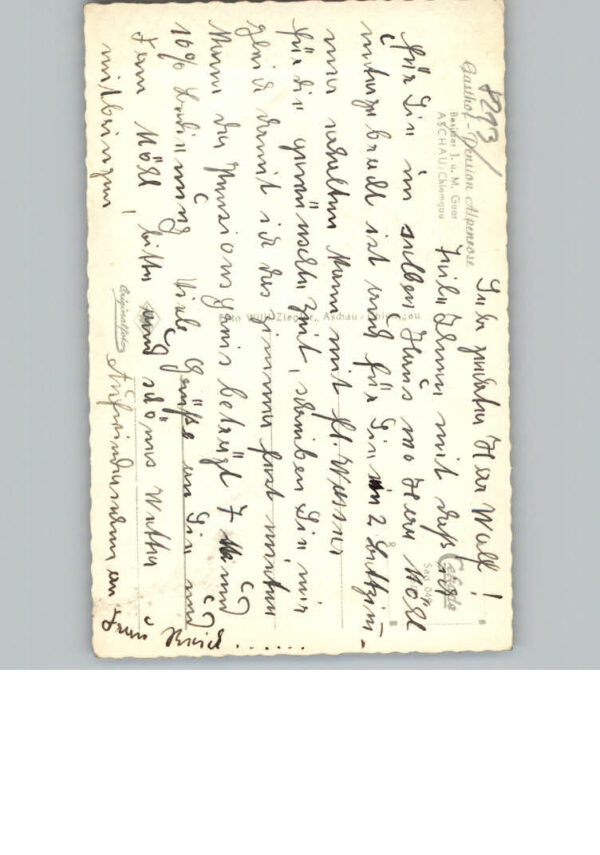 8293/
Gasthof-Pension Alpenrose
Besitzer J. u. M. Goor
ASCHAU/Chiemgau
Sehr geehrter Herr Wolf!
Teile Ihnen mit daß ich
für Sie im selben Haus wo Herr Köll
untergebracht ist und für Sie 2 Bettzim-
mer erhalten kann mit fl. Wasser
für die gewünschte Zeit, schreiben Sie mir
gleich damit ich das Zimmer fest mieten
kann der Pensionspreis beträgt 7 Mark
10% Bedienung Viele Grüße an Sie und
Fam Köll, bitte schönes Wetter
mitbringen! Aufwiedersehen
Foto Willi Ziegler, Aschau/Chiemgau
Originalfoto
Agfa